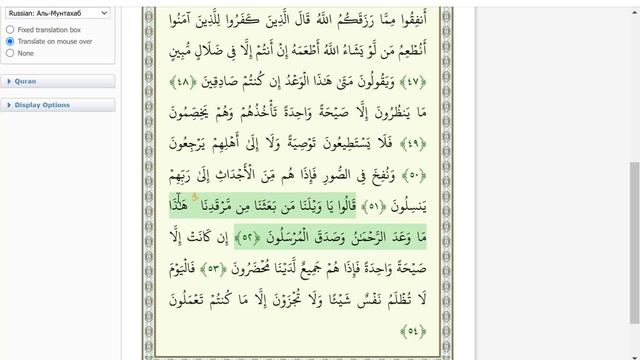 Russian: Аль-Мунтахаб
Fixed translation box
Translate on mouse over
None
Quran
Display Options
أَنفِقُوا مِمَّا رَزَقَكُمُ اللَّهُ قَالَ الَّذِينَ كَفَرُوا لِلَّذِينَ آمَنُوا
أَنُطْعِمُ مَن لَّوْ يَشَاءُ اللَّهُ أَطْعَمَهُ إِنْ أَنتُمْ إِلَّا فِي ضَلَالٍ مُّبِينٍ
﴿٤٧﴾ وَيَقُولُونَ مَتَىٰ هَٰذَا الْوَعْدُ إِن كُنتُمْ صَادِقِينَ ﴿٤٨﴾
مَا يَنظُرُونَ إِلَّا صَيْحَةً وَاحِدَةً تَأْخُذُهُمْ وَهُمْ يَخِصِّمُونَ
﴿٤٩﴾ فَلَا يَسْتَطِيعُونَ تَوْصِيَةً وَلَا إِلَىٰ أَهْلِهِمْ يَرْجِعُونَ
﴿٥٠﴾ وَنُفِخَ فِي الصُّورِ فَإِذَا هُم مِّنَ الْأَجْدَاثِ إِلَىٰ رَبِّهِمْ
يَنسِلُونَ ﴿٥١﴾ قَالُوا يَا وَيْلَنَا مَن بَعَثَنَا مِن مَّرْقَدِنَا ۜ هَٰذَا
مَا وَعَدَ الرَّحْمَٰنُ وَصَدَقَ الْمُرْسَلُونَ ﴿٥٢﴾ إِن كَانَتْ إِلَّا
صَيْحَةً وَاحِدَةً فَإِذَا هُمْ جَمِيعٌ لَّدَيْنَا مُحْضَرُونَ ﴿٥٣﴾ فَالْيَوْمَ
لَا تُظْلَمُ نَفْسٌ شَيْئًا وَلَا تُجْزَوْنَ إِلَّا مَا كُنتُمْ تَعْمَلُونَ
﴿٥٤﴾